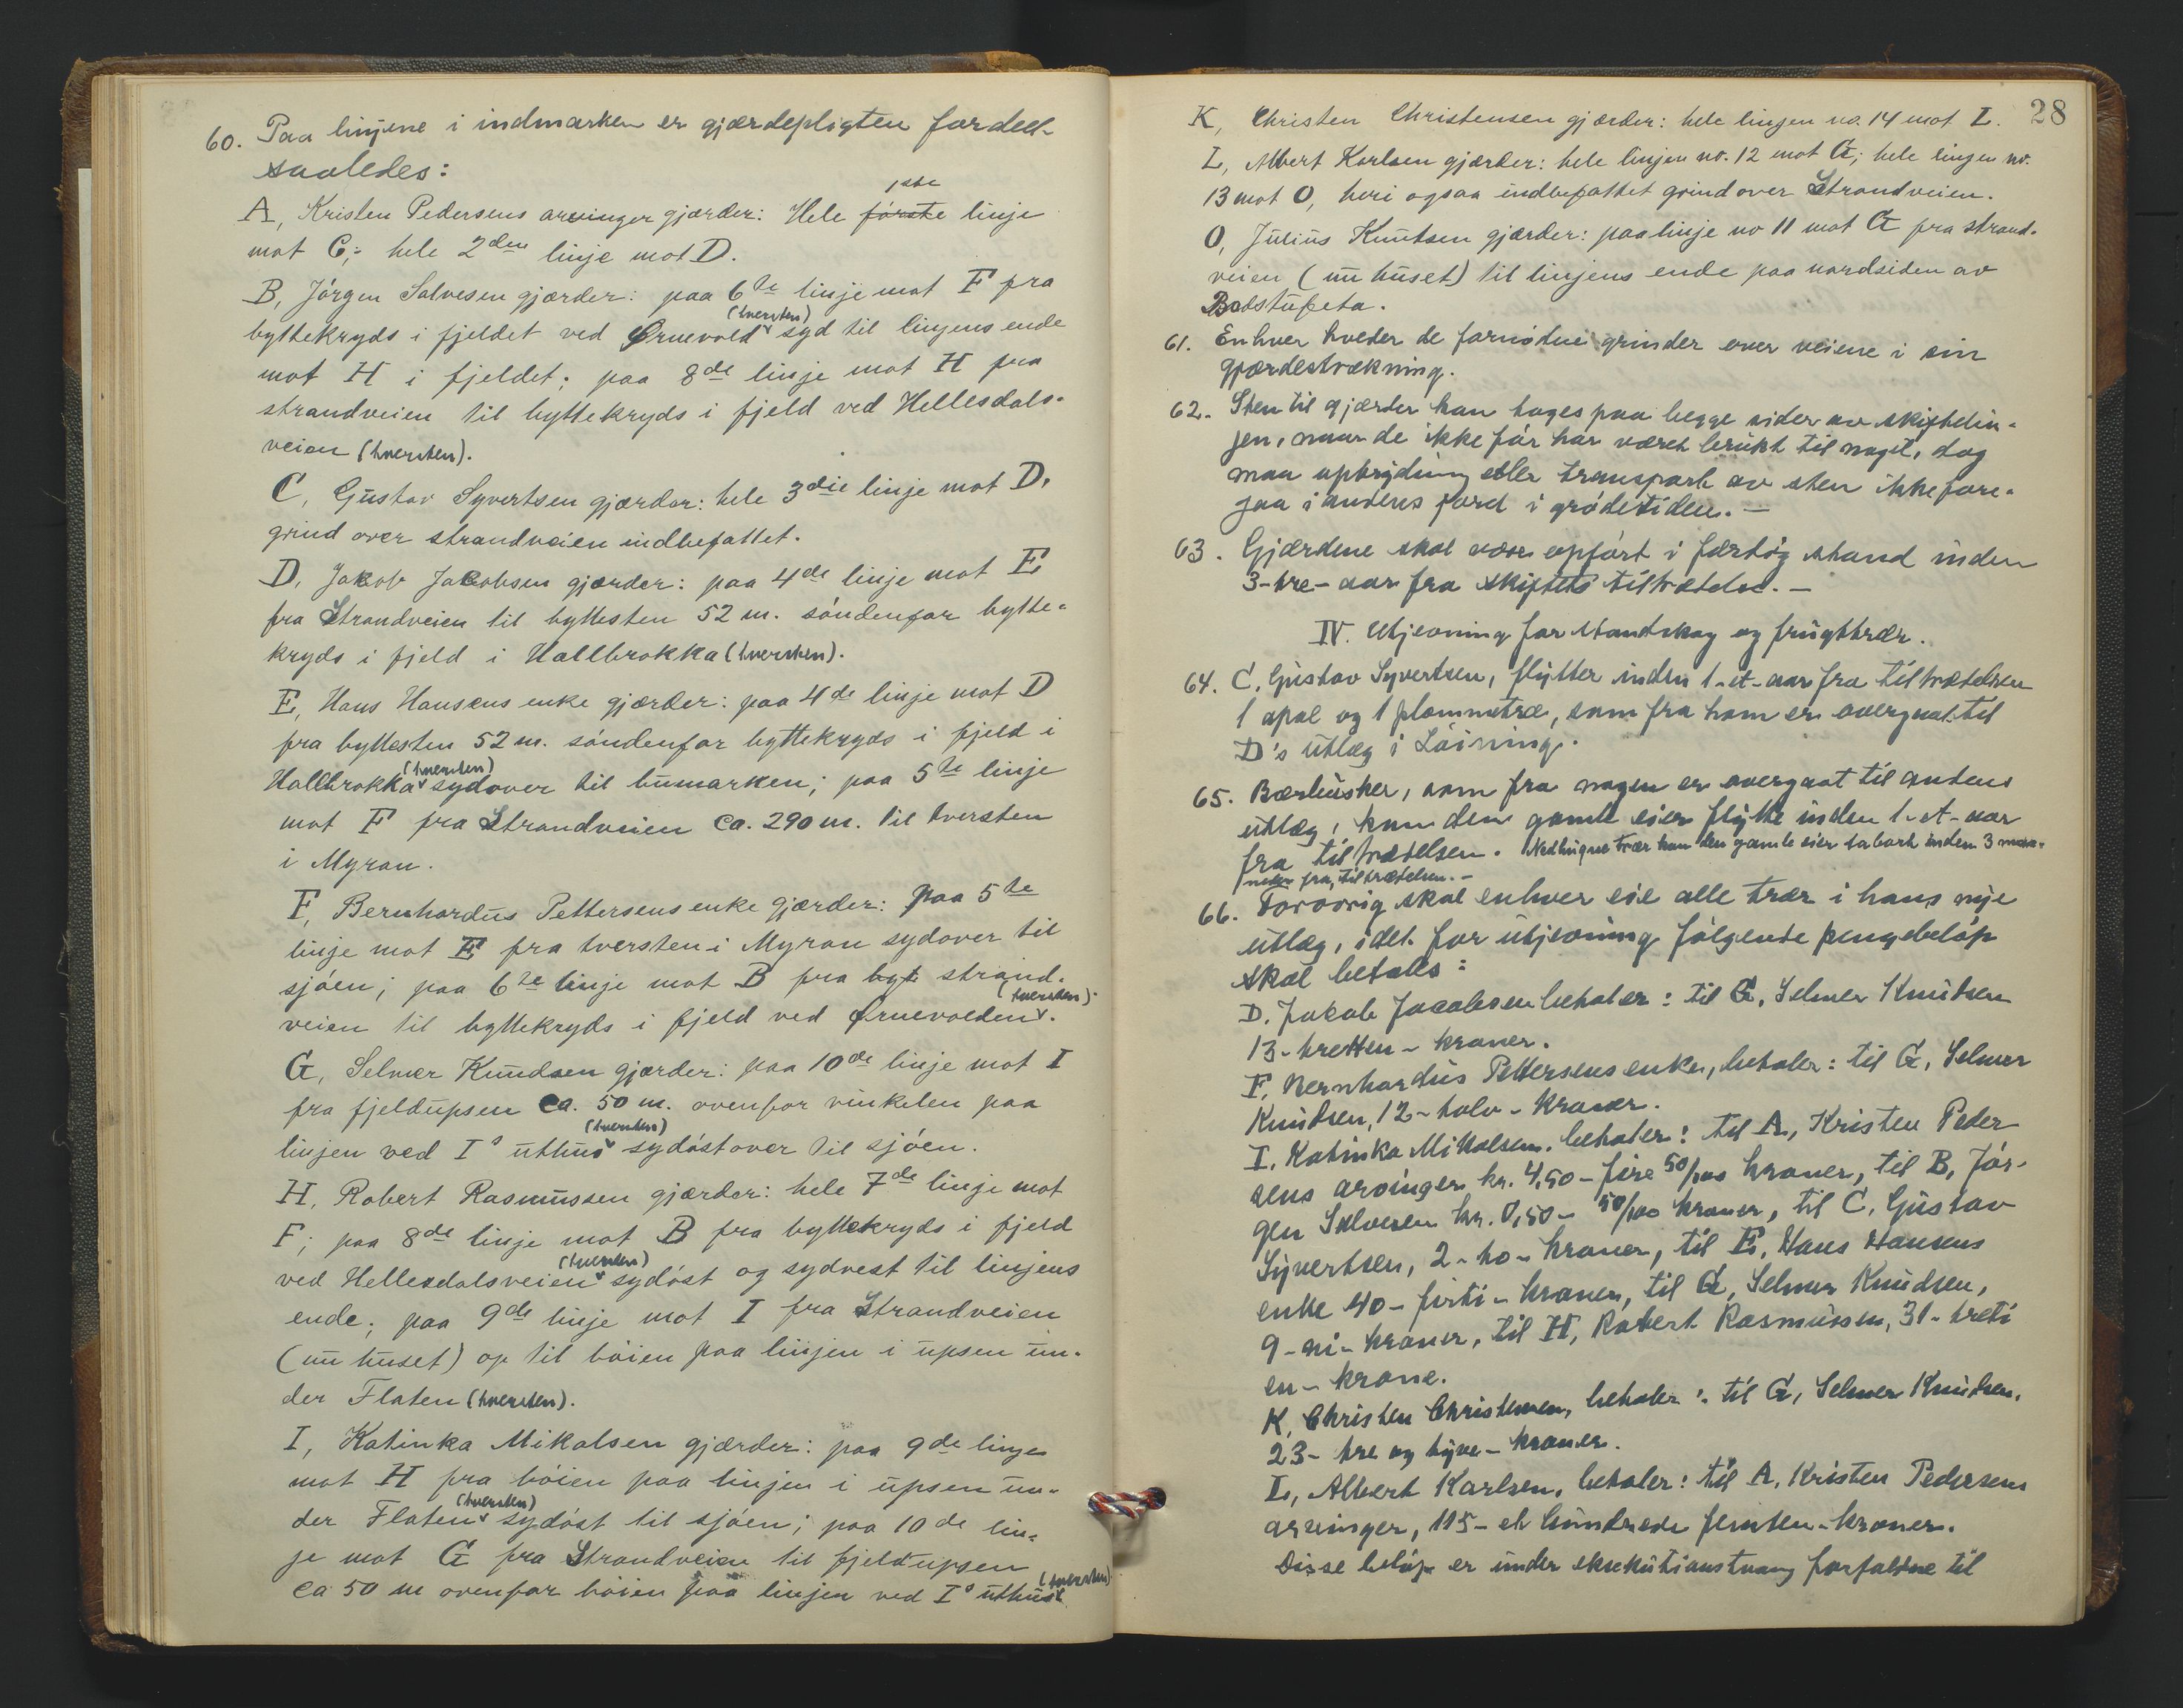 60. Paa linjene i indmarken er gjærdepligten fordelt
saaledes:
1ste
A, Kristen Pedersens arvinger gjærder: Hele første linje
mot C; hele 2den linje mot D.
B, Jörgen Salvesen gjærder: paa 6te linje mot F fra
(tversten)
byttekryds i fjeldet ved Ørnevold syd til linjens ende
mot H i fjeldet; paa 8de linje mot H fra
strandveien til byttekryds i fjeld ved Hellesdals-
veien (tversten).
C, Gustav Syvertsen gjærder: hele 3die linje mot D,
grind over strandveien indbefattet.
D, Jakob Jacobsen gjærder: paa 4de linje mot E
fra Strandveien til byttesten 52 m. söndenfor bytte-
kryds i fjeld i Hallbrokka (tversten).
E, Hans Hansens enke gjærder: paa 4de linje mot D
fra byttesten 52 m. söndenfor byttekryds i fjeld i
(tversten)
Hallbrokka sydover til bumarken; paa 5te linje
mot F fra Strandveien ca. 290 m. til tversten
i Myran.
F, Bernhardus Pettersens enke gjærder: paa 5te
linje mot E fra tversten i Myran sydover til
sjöen; paa 6te linje mot B fra byt strand-
(tversten)
veien til byttekryds i fjeld ved Ørnevolden.
G, Selmer Knudsen gjærder: paa 10de linje mot I
fra fjeldupsen ca. 50 m. ovenfor vinkelen paa
(tversten)
linjen ved I's uthus sydöstover til sjöen.
H, Robert Rasmussen gjærder: hele 7de linje mot
F; paa 8de linje mot B fra byttekryds i fjeld
(tversten)
ved Hellesdalsveien sydöst og sydvest til linjens
ende; paa 9de linje mot I fra Strandveien
(nu huset) op til böien paa linjen i upsen un-
der Flaten (tversten).
I, Katinka Mikalsen gjærder: paa 9de linje
mot H fra böien paa linjen i upsen un-
(tversten)
der Flaten sydöst til sjöen; paa 10de lin-
je mot G fra Strandveien til fjeldupsen
(tversten)
ca 50 m ovenfor böien paa linjen ved I's uthus
28
K, Christen Christensen gjærder: hele linjen no. 14 mot L.
L, Albert Karlsen gjærder: hele linjen no. 12 mot G; hele linjen no.
13 mot O, heri ogsaa indbefattet grind over Strandveien.
O, Julius Knutsen gjærder: paa linje no 11 mot G fra strand-
veien (nu huset) til linjens ende paa nordsiden av
Badstufeta.
61. Enhver holder de fornødne grinder over veiene i sin
gjærdestrækning.
62. Sten til gjærder kan tages paa begge sider av skiftelin-
jen, naar de ikke før har været brukt til noget, dog
maa opbrydning eller transport av sten ikke fore-
gaa i andens jord i grödetiden. —
63. Gjærdene skal være opfört i færdig stand inden
3-tre-aar fra skiftets tiltrædelse. —
IV. Utjevning for standskog og frugttrær.
64. C, Gustav Syvertsen, flytter inden 1-et-aar fra tiltrædelsen
1 apal og 1 plommetræ, som fra ham er overgaat til
D's utlæg i Löining.
65. Bærbusker, som fra nogen er overgaat til andens
utlæg, kan den gamle eier flytte inden 1-et-aar
fra tiltrædelsen. Nedhugne trær kan den gamle eier ta bort inden 3 maa-
neder fra tiltrædelsen. —
66. Forøvrig skal enhver eie alle trær i hans nye
utlæg, idet for utjevning følgende pengebelöp
skal betales:
D. Jakob Jacobsen betaler: til G, Selmer Knudsen
13-tretten-kroner.
F, Bernhardus Pettersens enke, betaler: til G, Selmer
Knudsen, 12-tolv-kroner.
I, Katinka Mikalsen, betaler: til A, Kristen Peder-
sens arvinger kr. 4,50 - fire 50/100 kroner, til B, Jör-
gen Salvesen kr. 0,50 - 50/100 kroner, til C, Gustav
Syvertsen, 2-to-kroner, til E, Hans Hansens
enke 40-firti-kroner, til G, Selmer Knudsen,
9-ni-kroner, til H, Robert Rasmussen, 31-treti
en-krone.
K, Christen Christensen, betaler: til G, Selmer Knudsen,
23-tre og tyve-kroner.
L, Albert Karlsen, betaler: til A, Kristen Pedersens
arvinger, 115-et hundrede femten-kroner.
Disse belöp er under eksekutionstvang forfaldne til